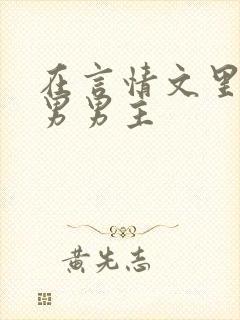 在言情文里
男男主
黄先志